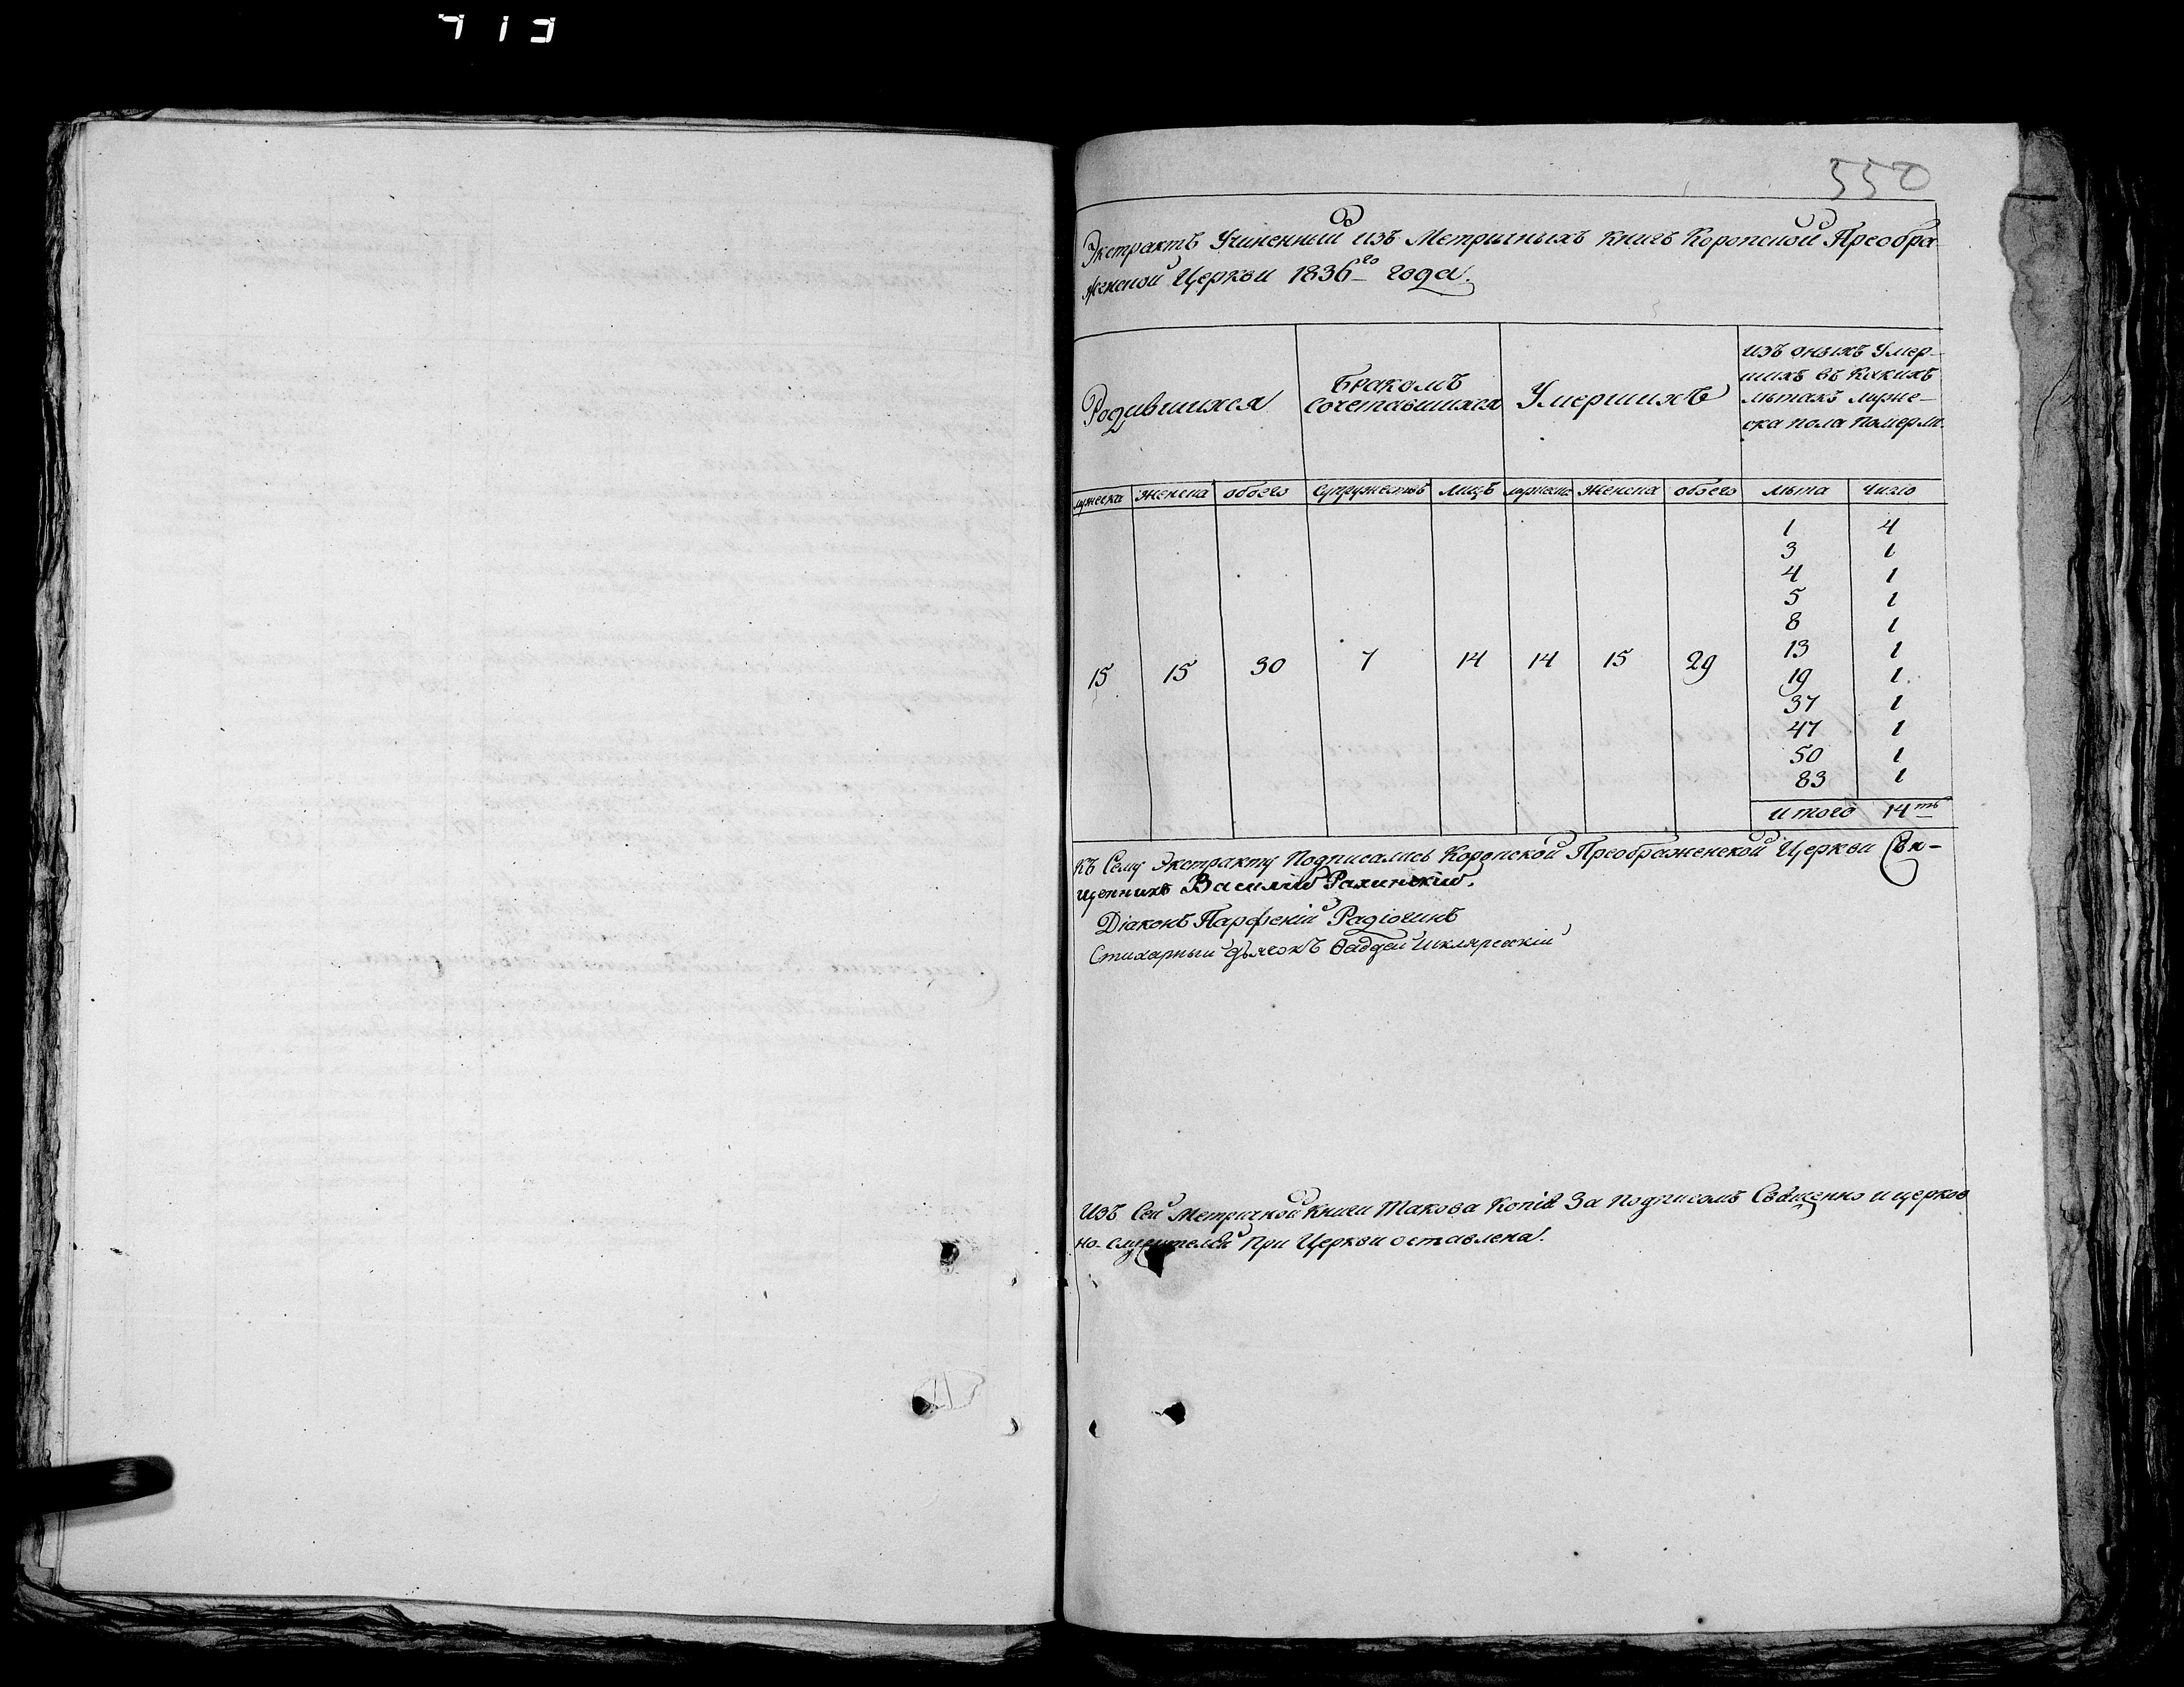 713
550
Экстрактъ Учиненный изъ Метричныхъ книгъ Коропской Преобра
женской Церкви 1836го года.
Родившихся
Бракомъ
сочетавшихся
Умершихъ
изъ оныхъ Умер-
шихъ въ какихъ
лѣтахъ мужес-
ка пола померли
мужеска женска обоего супружествъ лицъ мужеска женска обоего лѣта число
1 4
3 1
4 1
5 1
8 1
13 1
19 1
37 1
47 1
50 1
83 1
15 15 30 7 14 14 15 29
итого 14ть
Къ Сему Экстракту Подписались Коропской Преображенской Церкви Свя-
щенникъ Василій
Діаконъ Парфеній
Стихарный дьячокъ Ѳаддей Шкляревскій
Изъ Сей Метричкой Книги Такова Копія За Подписомъ Священно и церков
но-служителей При Церкви оставлена.